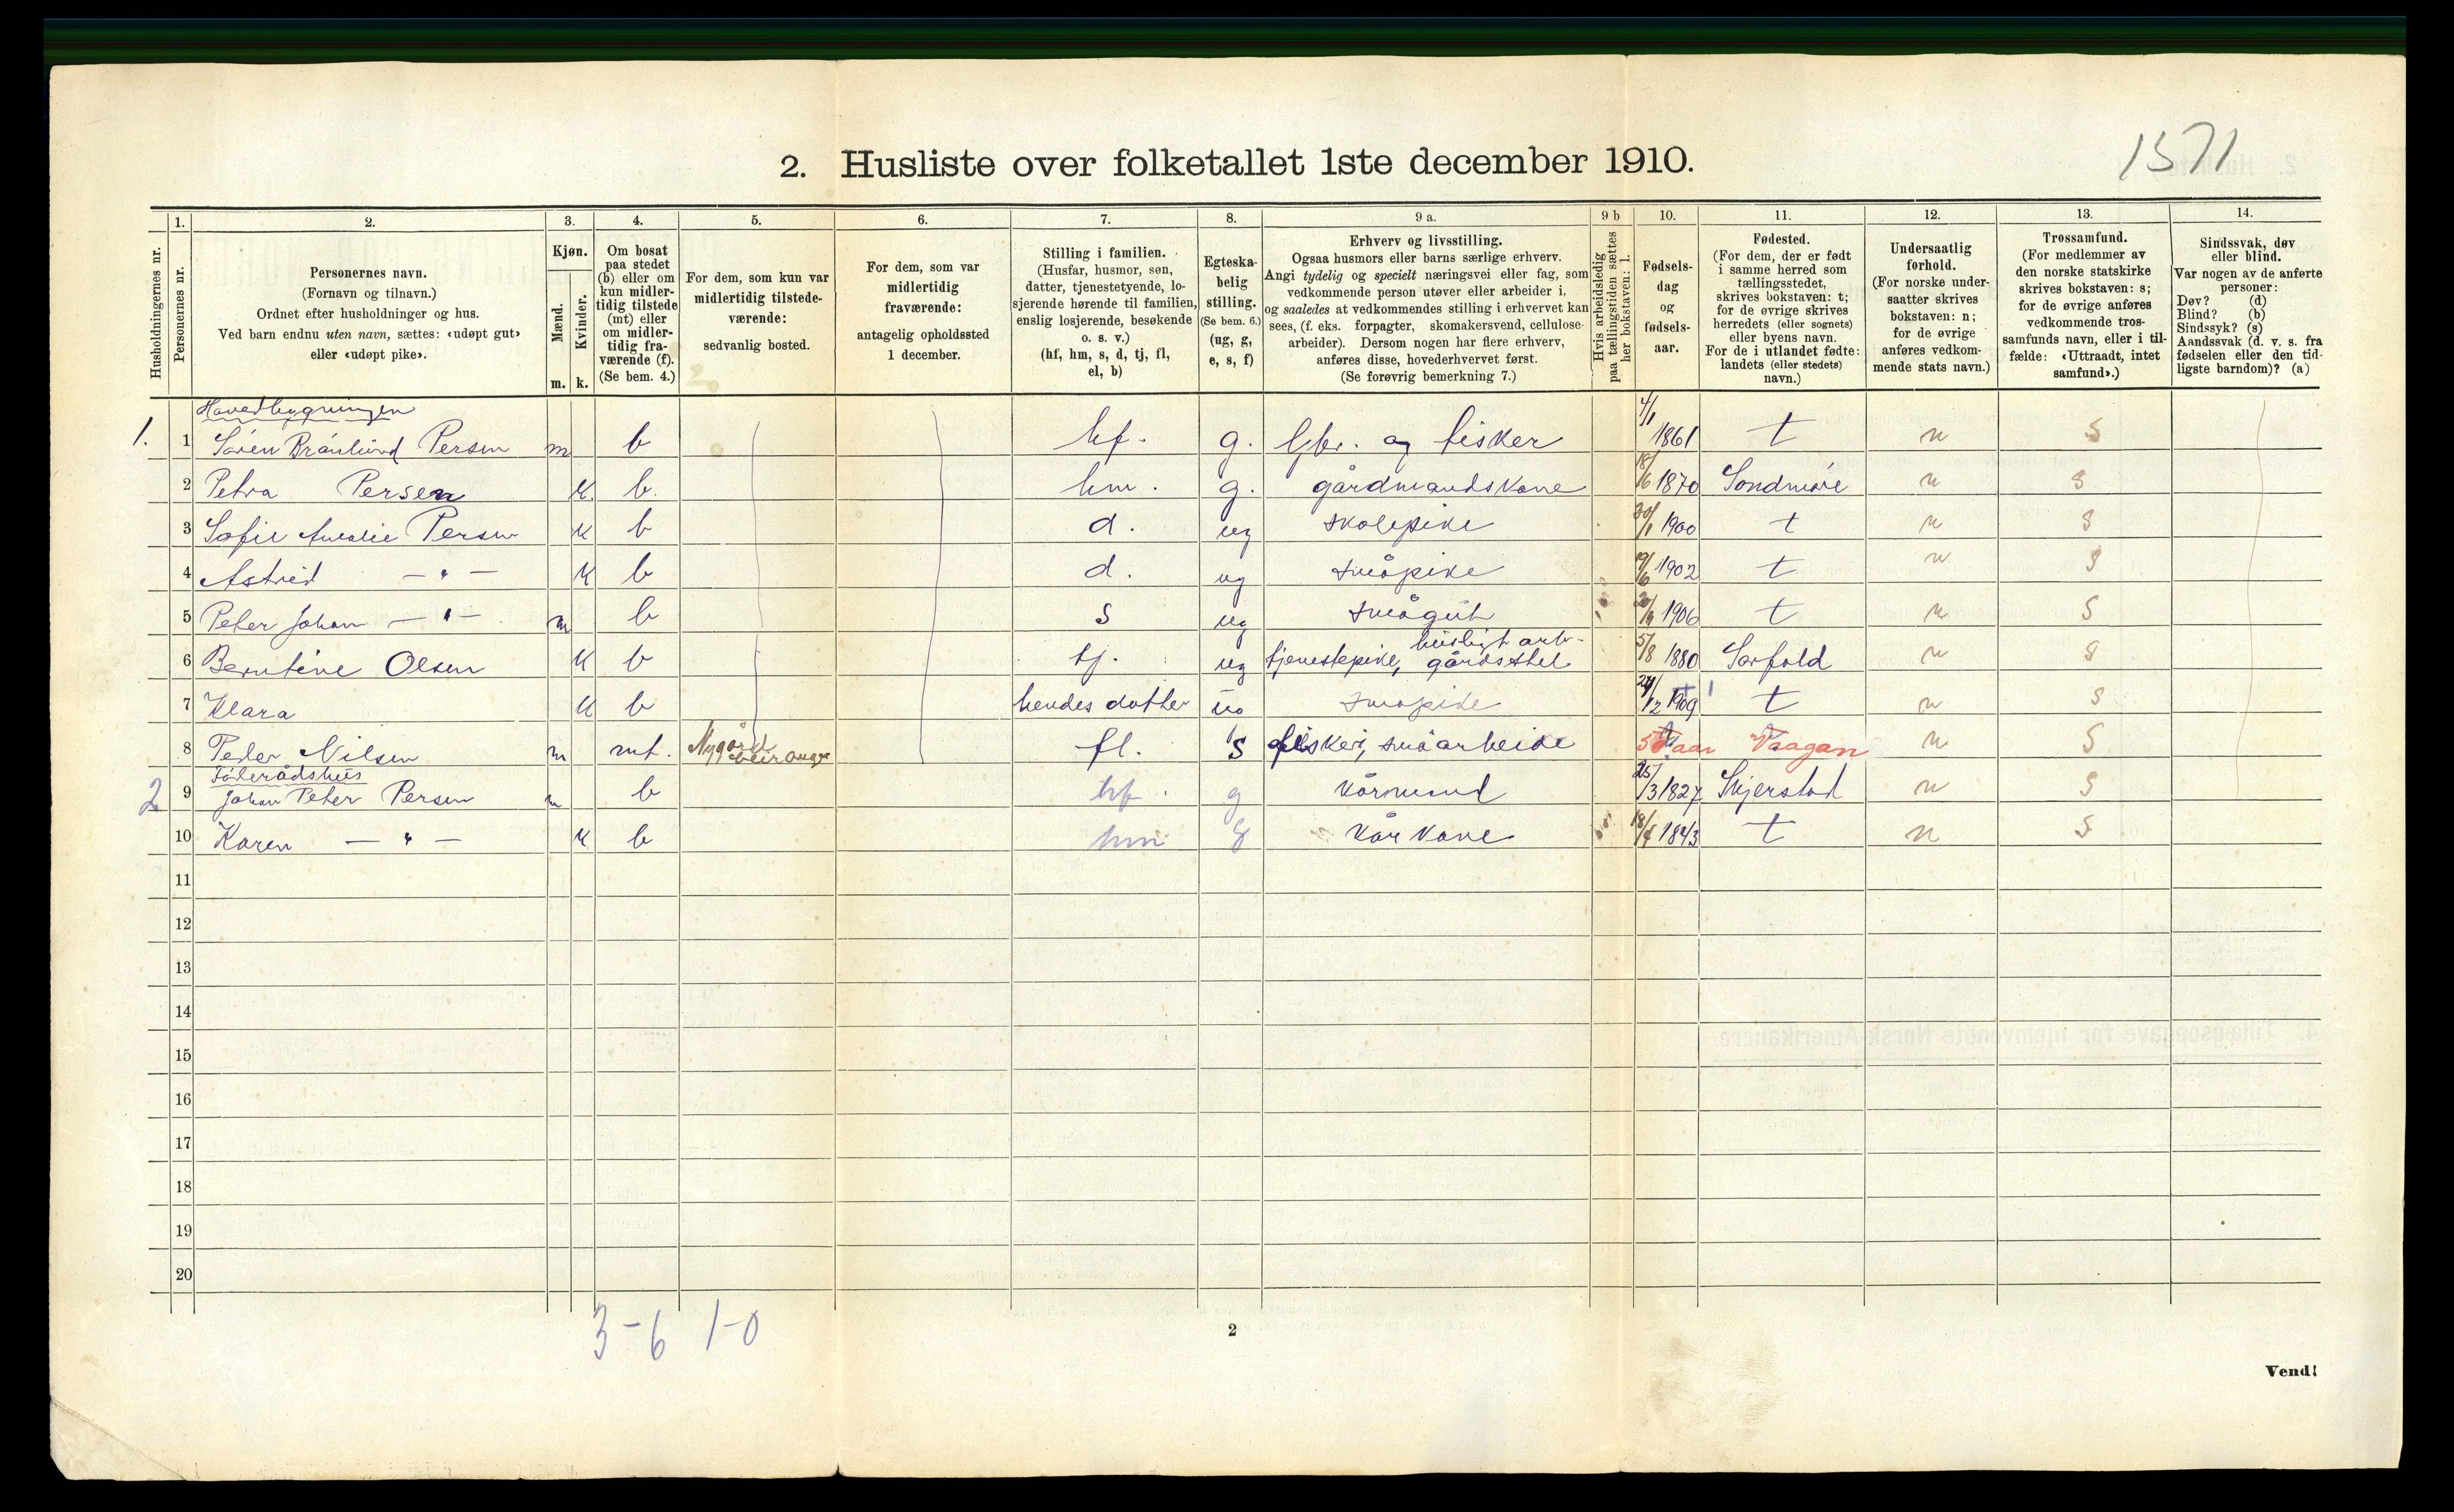 1571
2. Husliste over folketallet 1ste december 1910.
Husholdningernes nr.
1.
Personernes nr.
2.
Personernes navn.
(Fornavn og tilnavn.)
Ordnet efter husholdninger og hus.
Ved barn endnu uten navn, sættes: «udøpt gut»
eller «udøpt pike».
3.
Kjøn.
Mænd.
Kvinder.
m. k.
4.
Om bosat
paa stedet
(b) eller om
kun midler-
tidig tilstede
(mt) eller
om midler-
tidig fra-
værende (f).
(Se bem. 4.)
5.
For dem, som kun var
midlertidig tilstede-
værende:
sedvanlig bosted.
6.
For dem, som var
midlertidig
fraværende:
antagelig opholdssted
1 december.
7.
Stilling i familien.
(Husfar, husmor, søn,
datter, tjenestetyende, lo-
sjerende hørende til familien,
enslig losjerende, besøkende
o. s. v.)
(hf, hm, s, d, tj, fl,
el, b)
8.
Egteska-
belig
stilling.
(Se bem. 6.)
(ug, g,
e, s, f)
9 a.
Erhverv og livsstilling.
Ogsaa husmors eller barns særlige erhverv.
Angi tydelig og specielt næringsvei eller fag, som
vedkommende person utøver eller arbeider i,
og saaledes at vedkommendes stilling i erhvervet kan
sees, (f. eks. forpagter, skomakersvend, cellulose-
arbeider). Dersom nogen har flere erhverv,
anføres disse, hovederhvervet først.
(Se forøvrig bemerkning 7.)
9 b
Hvis arbeidsledig
paa tællingstiden sættes
her bokstaven: l.
10.
Fødsels-
dag
og
fødsels-
aar.
11.
Fødested.
(For dem, der er født
i samme herred som
tællingsstedet,
skrives bokstaven: t;
for de øvrige skrives
herredets (eller sognets)
eller byens navn.
For de i utlandet fødte:
landets (eller stedets)
navn.)
12.
Undersaatlig
forhold.
(For norske under-
saatter skrives
bokstaven: n;
for de øvrige
anføres vedkom-
mende stats navn.)
13.
Trossamfund.
(For medlemmer av
den norske statskirke
skrives bokstaven: s;
for de øvrige anføres
vedkommende tros-
samfunds navn, eller i til-
fælde: «Uttraadt, intet
samfund».)
14.
Sindssvak, døv
eller blind.
Var nogen av de anførte
personer:
Døv? (d)
Blind? (b)
Sindssyk? (s)
Aandssvak (d. v. s. fra
fødselen eller den tid-
ligste barndom)? (a)
Hovedbygningen
1. 1 Sören Brönlund Persen m b hf. g. Gbr. og fisker 4/1 1861 t n s
2 Petra Persen k b. hm. g. gårdmandskone 18/6 1870 Sondmöre n s
3 Sofie Amalie Persen k b d. ug skolepike 30/1 1900 t n s
4 Astrid — " — k b d. ug småpike 19/6 1902 t n s
5 Peter Johan — " — m b s ug smågut 20/9 1906 t n s
husligt arb-
6 Berntine Olsen k b tj. ug tjenestepike, gårdsstel 5/8 1880 Sorfold n s
7 Klara k b hendes datter ug småpike 24/12 1909 t n s
8 Peder Nilsen m mt. Nygård fl. s fisker, småarbeide aar Vaagan n s
Föderådshus
2 9 Johan Peter Persen m b hf. g kårmand 25/3 1827 Skjerstad n s
10 Karen — " — k b hm g kårkone 1843 t n s
11
12
13
14
15
16
17
18
19
20
3-6 1-0
2
Vend!